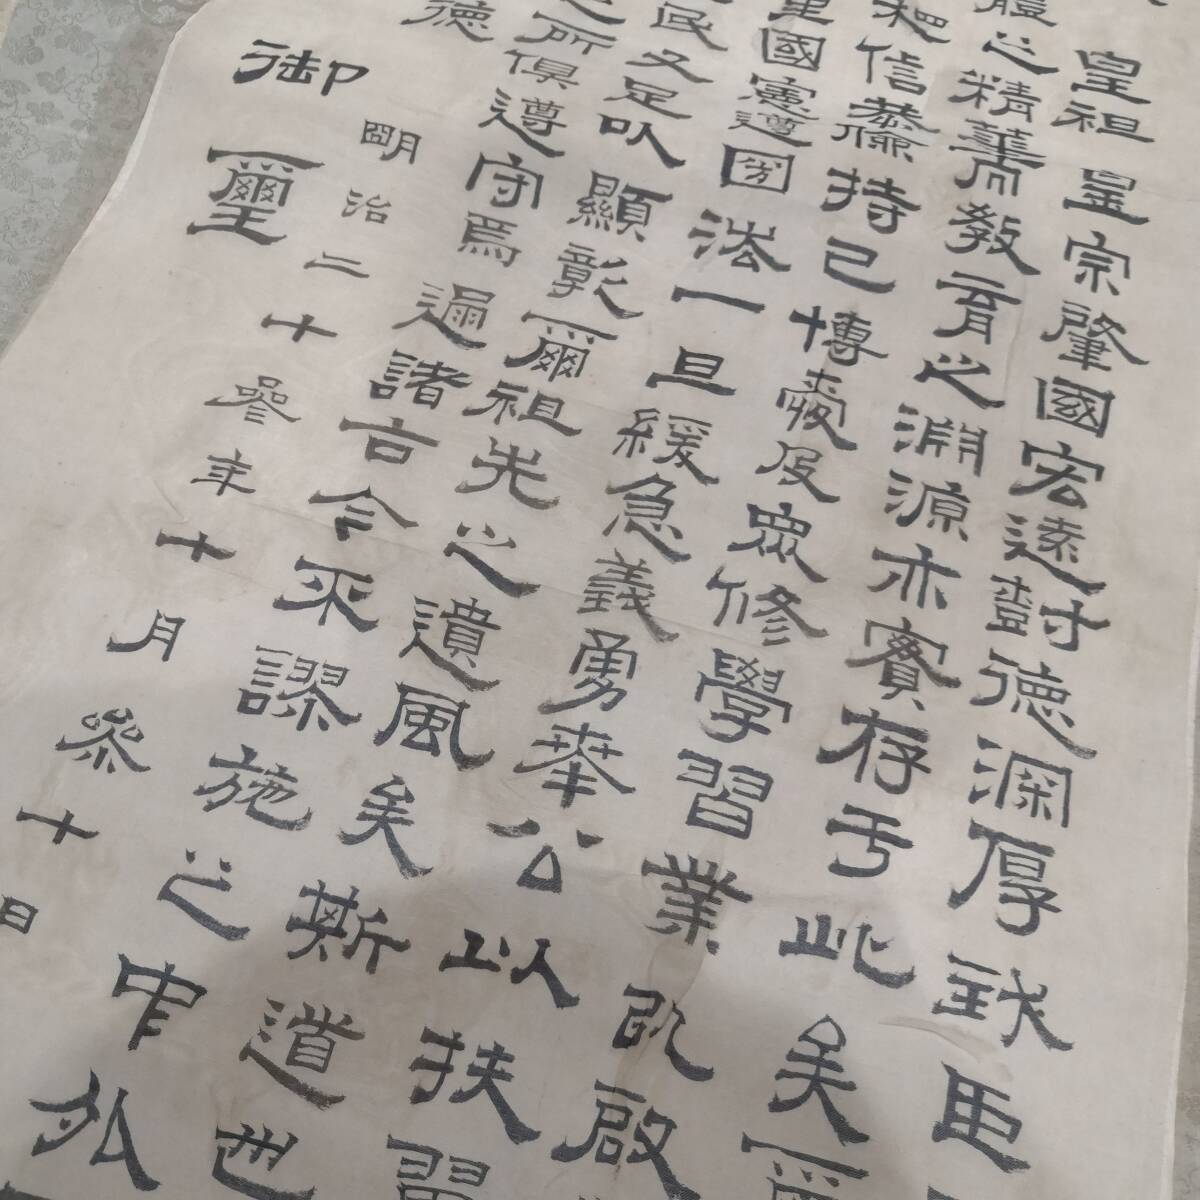 皇祖皇宗肇國宏遠樹德深厚我臣
體之精華而教育之淵源亦實存乎此矣爾
信恭儉持己博愛及眾修學習業以啟
重國憲遵國法一旦緩急義勇奉公以扶翼
民又足以顯彰爾祖先之遺風矣斯道也
之所俱遵守焉通諸古今不謬施之中外
德
明治二十參年十月參十日
御璽